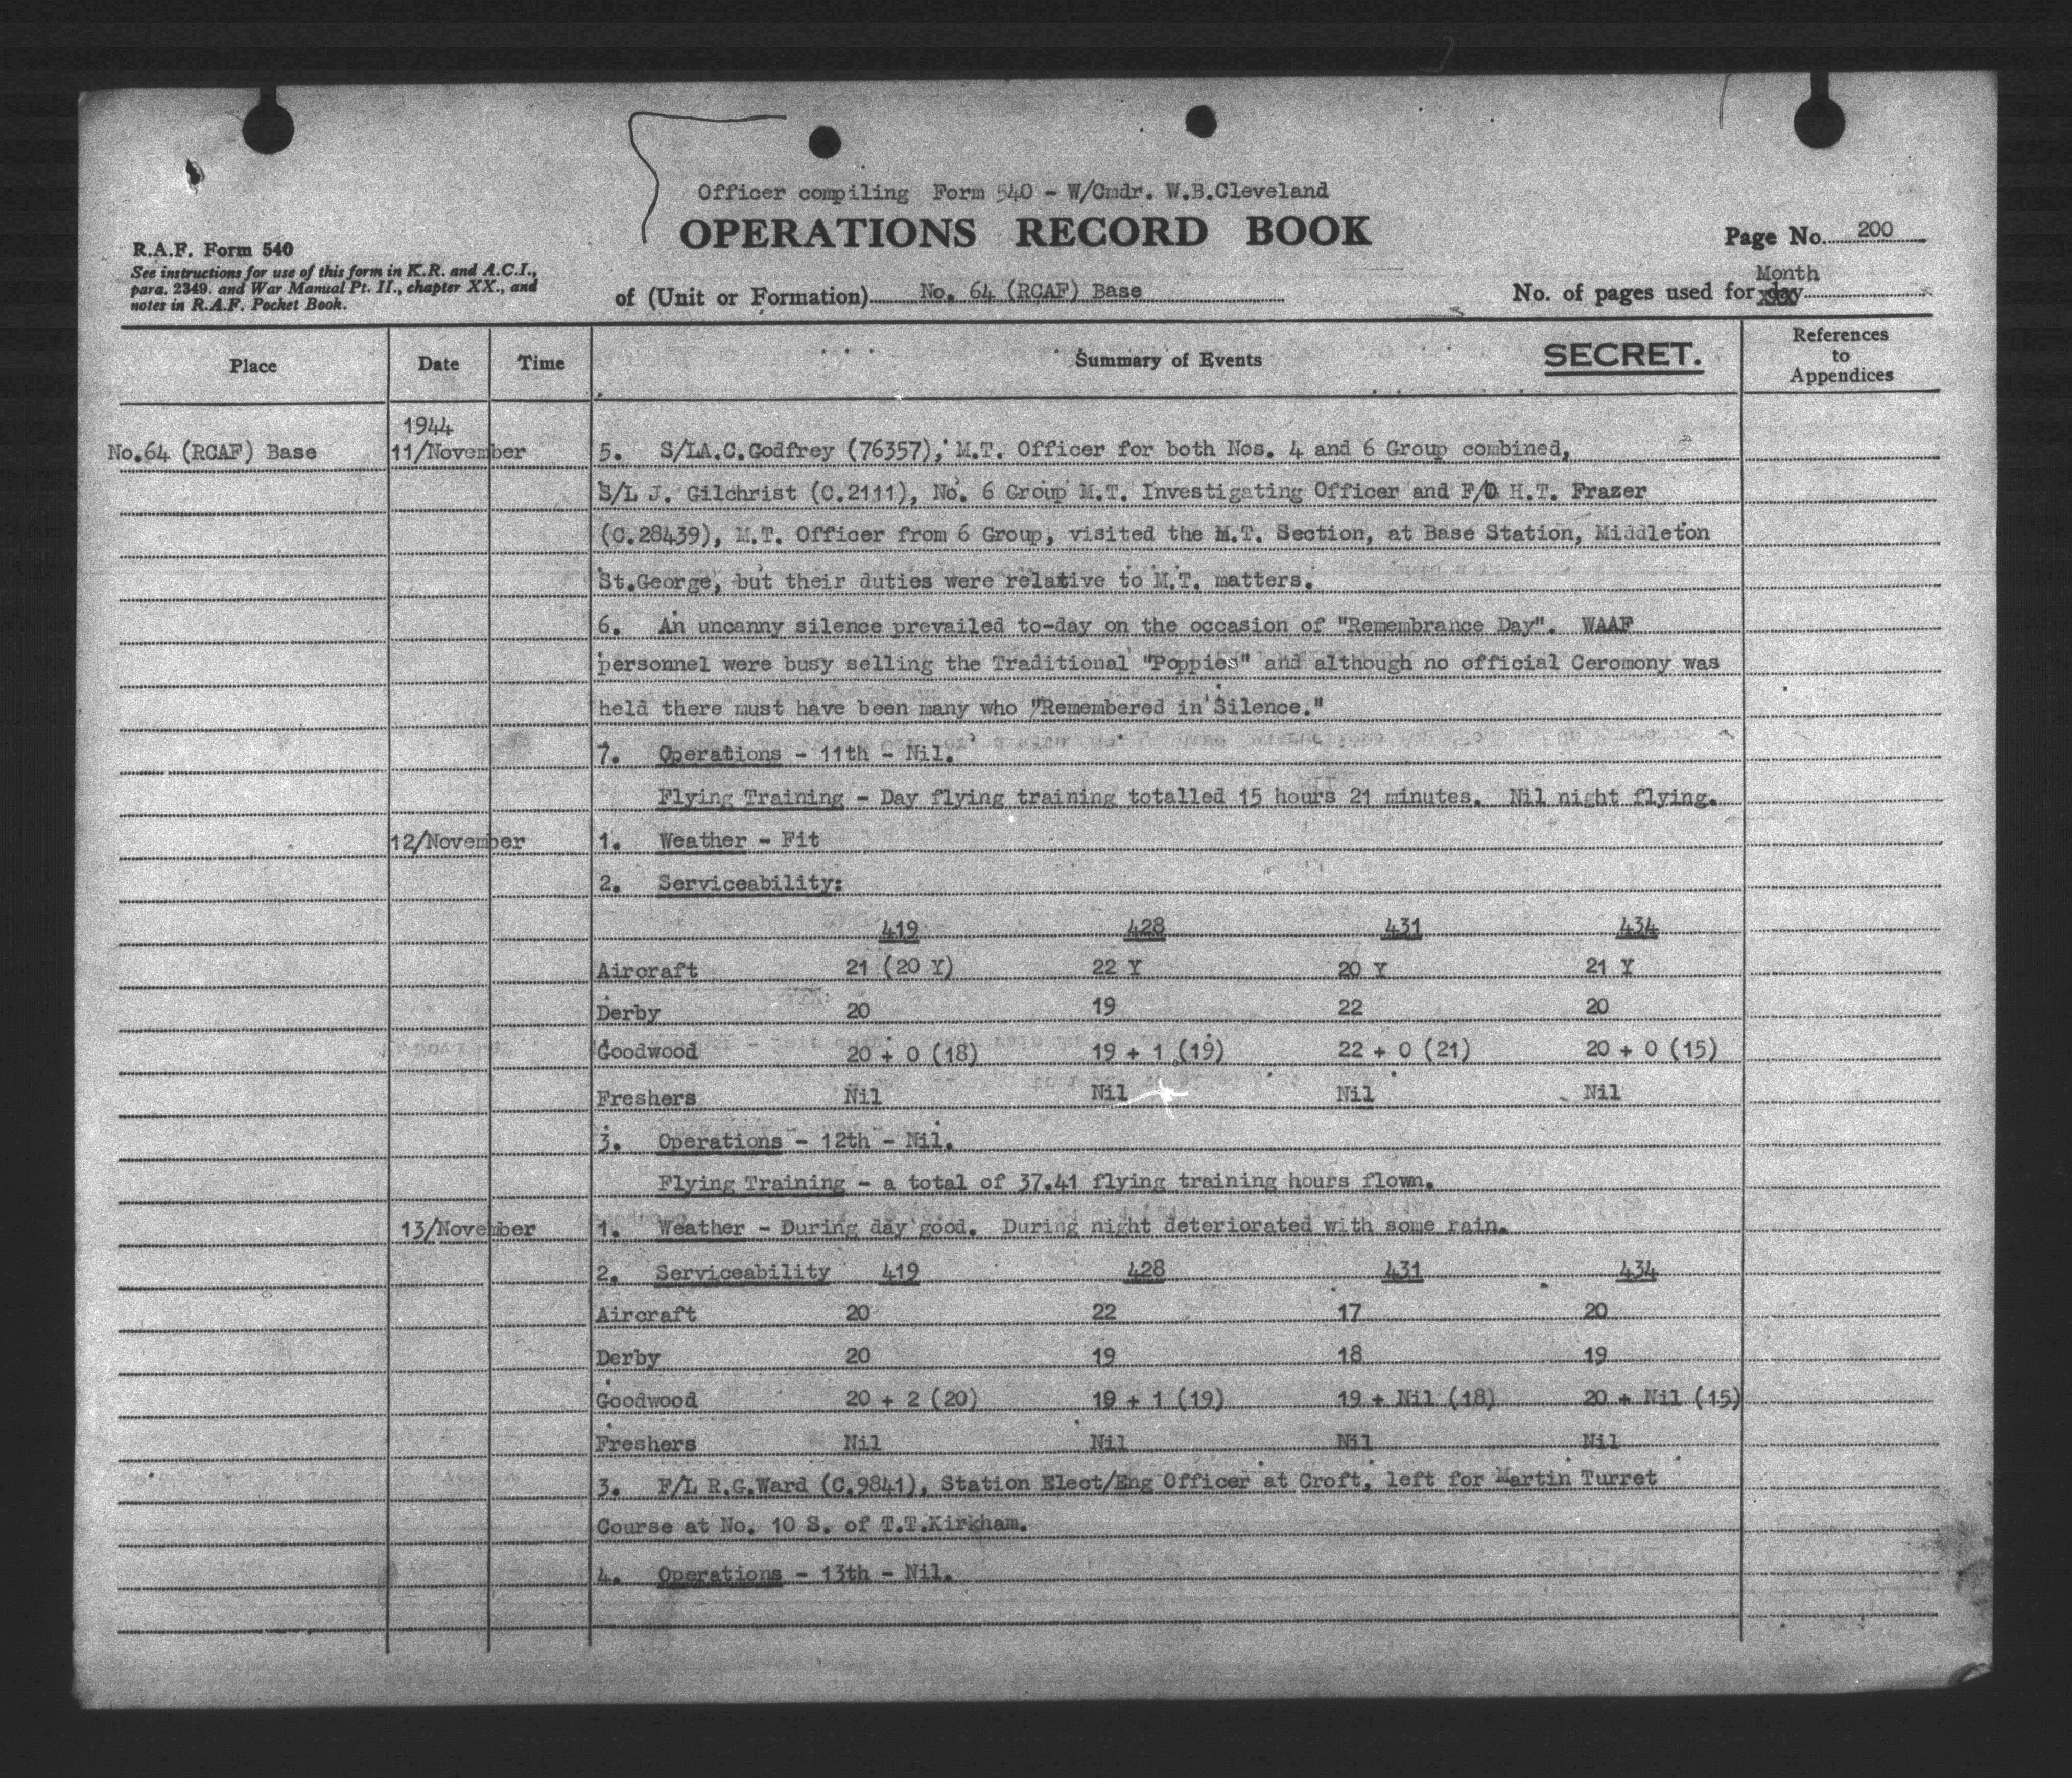 Officer compiling Form 540 - W/Cmdr. W.B.Cleveland
OPERATIONS RECORD BOOK
R.A.F. Form 540
See instructions for use of this form in K.R. and A.C.I.,
para. 2349. and War Manual Pt. II., chapter XX., and
notes in R.A.F. Pocket Book.
Page No. 200
of (Unit or Formation) No. 64 (RCAF) Base
Month
No. of pages used for day
Place Date Time Summary of Events SECRET. References to Appendices
1944
No.64 (RCAF) Base 11/November 5. S/LA.C.Godfrey (76357), M.T. Officer for both Nos. 4 and 6 Group combined,
S/L J. Gilchrist (C.2111), No. 6 Group M.T. Investigating Officer and F/O H.T. Frazer
(C.28439), M.T. Officer from 6 Group, visited the M.T. Section, at Base Station, Middleton
St.George, but their duties were relative to M.T. matters.
6. An uncanny silence prevailed to-day on the occasion of "Remembrance Day". WAAF
personnel were busy selling the Traditional "Poppies" and although no official Ceromony was
held there must have been many who "Remembered in Silence."
7. Operations - 11th - Nil.
Flying Training - Day flying training totalled 15 hours 21 minutes. Nil night flying.
12/November 1. Weather - Fit
2. Serviceability:
419 428 431 434
Aircraft 21 (20 Y) 22 Y 20 Y 21 Y
Derby 20 19 22 20
Goodwood 20 + 0 (18) 19 + 1 (19) 22 + 0 (21) 20 + 0 (15)
Freshers Nil Nil Nil Nil
3. Operations - 12th - Nil.
Flying Training - a total of 37.41 flying training hours flown.
13/November 1. Weather - During day good. During night deteriorated with some rain.
2. Serviceability 419 428 431 434
Aircraft 20 22 17 20
Derby 20 19 18 19
Goodwood 20 + 2 (20) 19 + 1 (19) 19 + Nil (18) 20 + Nil (15)
Freshers Nil Nil Nil Nil
3. F/L R.G.Ward (C.9841), Station Elect/Eng Officer at Croft, left for Martin Turret
Course at No. 10 S. of T.T.Kirkham.
4. Operations - 13th - Nil.